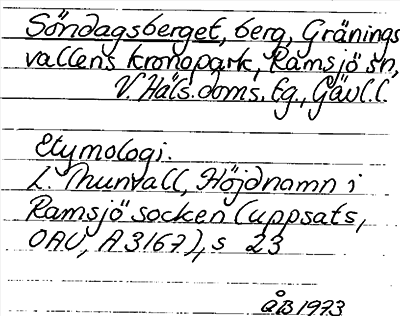 Söndagsberget, berg, Gränings
vallens kronopark, Ramsjö sn,
V. Häls. doms. tg., Gävl. l.
Etymologi.
L. Thunvall, Höjdnamn i
Ramsjö socken (uppsats,
OAU, A 3167), s 23
ÅB 1973